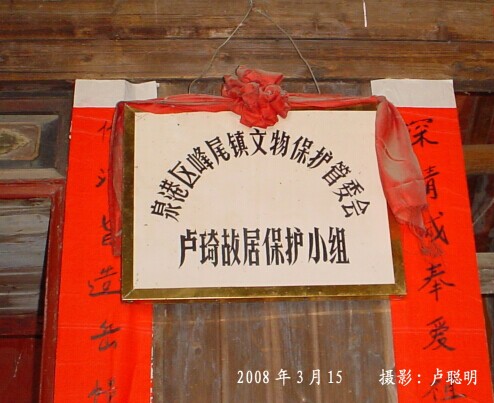 泉港区峰尾镇文物保护管委会
卢琦故居保护小组
深情感奉爱
皆造岳
2008年3月15 摄影：卢聪明